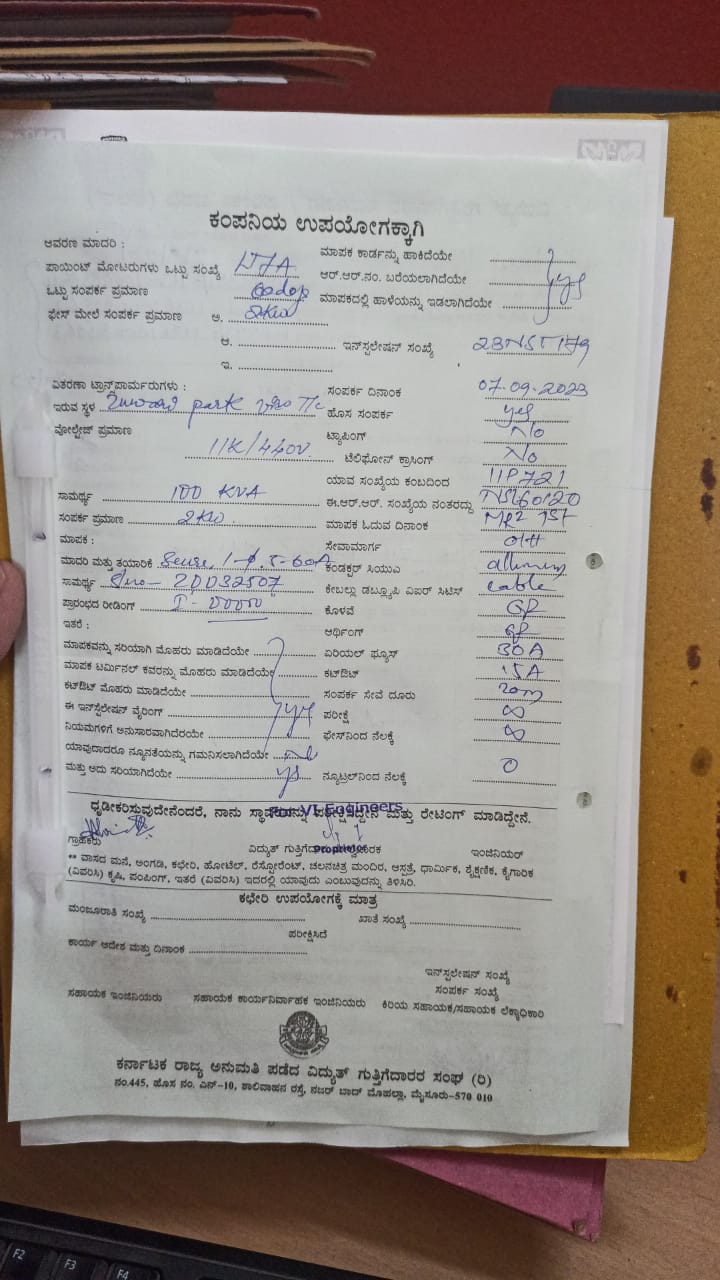 ಕಂಪನಿಯ ಉಪಯೋಗಕ್ಕಾಗಿ
ಆವರಣ ಮಾದರಿ :
ಮಾಪಕ ಕಾರ್ಡನ್ನು ಹಾಕಿದೆಯೇ
ಪಾಯಿಂಟ್ ಮೋಟರುಗಳು ಒಟ್ಟು ಸಂಖ್ಯೆ
ಆರ್.ಆರ್.ನಂ. ಬರೆಯಲಾಗಿದೆಯೇ yes
ಒಟ್ಟು ಸಂಪರ್ಕ ಪ್ರಮಾಣ
ಮಾಪಕದಲ್ಲಿ ಹಾಳೆಯನ್ನು ಇಡಲಾಗಿದೆಯೇ
ಫೇಸ್ ಮೇಲೆ ಸಂಪರ್ಕ ಪ್ರಮಾಣ ಅ. 2kw
ಆ. ಇನ್‌ಸ್ಟಲೇಷನ್ ಸಂಖ್ಯೆ
ಇ.
ವಿತರಣಾ ಟ್ರಾನ್ಸ್‌ಫಾರ್ಮರುಗಳು :
ಸಂಪರ್ಕ ದಿನಾಂಕ 07.09.2023
ಇರುವ ಸ್ಥಳ park
ಹೊಸ ಸಂಪರ್ಕ yes
ವೋಲ್ಟೇಜ್ ಪ್ರಮಾಣ 11K/440V
ಟ್ಯಾಪಿಂಗ್ No
ಟೆಲಿಫೋನ್ ಕ್ರಾಸಿಂಗ್ No
ಯಾವ ಸಂಖ್ಯೆಯ ಕಂಬದಿಂದ 11P721
ಸಾಮರ್ಥ್ಯ 100 KVA
ಈ.ಆರ್.ಆರ್. ಸಂಖ್ಯೆಯ ನಂತರದ್ದು
ಸಂಪರ್ಕ ಪ್ರಮಾಣ 2KW
ಮಾಪಕ ಓದುವ ದಿನಾಂಕ
ಮಾಪಕ :
ಸೇವಾಮಾರ್ಗ O/H
ಮಾದರಿ ಮತ್ತು ತಯಾರಿಕೆ
ಕಂಡಕ್ಟರ್ ಸಿಯುಎ
ಸಾಮರ್ಥ್ಯ
ಕೇಬಲ್ಲು ಡಬ್ಲ್ಯೂಪಿ ವಿಐರ್ ಸಿಟಿಸ್ cable
ಪ್ರಾರಂಭದ ರೀಡಿಂಗ್
ಕೊಳವೆ
ಇತರೆ :
ಆರ್ಥಿಂಗ್
ಮಾಪಕವನ್ನು ಸರಿಯಾಗಿ ಮೊಹರು ಮಾಡಿದೆಯೇ
ಏರಿಯಲ್ ಫ್ಯೂಸ್ 30A
ಮಾಪಕ ಟರ್ಮಿನಲ್ ಕವರನ್ನು ಮೊಹರು ಮಾಡಿದೆಯೇ
ಕಟ್‌ಔಟ್ 15A
ಕಟ್‌ಔಟ್ ಮೊಹರು ಮಾಡಿದೆಯೇ
ಸಂಪರ್ಕ ಸೇವೆ ದೂರು 20m
ಈ ಇನ್‌ಸ್ಟೆಲೇಷನ್ ವೈರಿಂಗ್ yes
ಪರೀಕ್ಷೆ ∞
ನಿಯಮಗಳಿಗೆ ಅನುಸಾರವಾಗಿದೆರಯೇ
ಫೇಸ್‌ನಿಂದ ನೆಲಕ್ಕೆ ∞
ಯಾವುದಾದರೂ ನ್ಯೂನತೆಯನ್ನು ಗಮನಿಸಲಾಗಿದೆಯೇ
ಮತ್ತು ಅದು ಸರಿಯಾಗಿದೆಯೇ yes
ನ್ಯೂಟ್ರಲ್‌ನಿಂದ ನೆಲಕ್ಕೆ 0
ಧೃಡೀಕರಿಸುವುದೇನೆಂದರೆ, ನಾನು ಸ್ಥಾವರವನ್ನು ಪರೀಕ್ಷಿಸಿದ್ದೇನೆ ಮತ್ತು ರೇಟಿಂಗ್ ಮಾಡಿದ್ದೇನೆ.
For VL Engineers
ಗ್ರಾಹಕರು
ವಿದ್ಯುತ್ ಗುತ್ತಿಗೆದಾರ
Proprietor
ಇಂಜಿನಿಯರ್
** ವಾಸದ ಮನೆ, ಅಂಗಡಿ, ಕಛೇರಿ, ಹೋಟೆಲ್, ರೆಸ್ಟೋರೆಂಟ್, ಚಲನಚಿತ್ರ ಮಂದಿರ, ಆಸ್ಪತ್ರೆ, ಧಾರ್ಮಿಕ, ಶೈಕ್ಷಣಿಕ, ಕೈಗಾರಿಕ
(ವಿವರಿಸಿ) ಕೃಷಿ, ಪಂಪಿಂಗ್, ಇತರೆ (ವಿವರಿಸಿ) ಇದರಲ್ಲಿ ಯಾವುದು ಎಂಬುವುದನ್ನು ತಿಳಿಸಿರಿ.
ಕಛೇರಿ ಉಪಯೋಗಕ್ಕೆ ಮಾತ್ರ
ಮಂಜೂರಾತಿ ಸಂಖ್ಯೆ ಖಾತೆ ಸಂಖ್ಯೆ
ಪರೀಕ್ಷಿಸಿದೆ
ಕಾರ್ಯ ಆದೇಶ ಮತ್ತು ದಿನಾಂಕ
ಇನ್‌ಸ್ಟಲೇಷನ್ ಸಂಖ್ಯೆ
ಸಂಪರ್ಕ ಸಂಖ್ಯೆ
ಸಹಾಯಕ ಇಂಜಿನಿಯರು ಸಹಾಯಕ ಕಾರ್ಯನಿರ್ವಾಹಕ ಇಂಜಿನಿಯರು ಕಿರಿಯ ಸಹಾಯಕ/ಸಹಾಯಕ ಲೆಕ್ಕಾಧಿಕಾರಿ
ಕರ್ನಾಟಕ ರಾಜ್ಯ ಅನುಮತಿ ಪಡೆದ ವಿದ್ಯುತ್ ಗುತ್ತಿಗೆದಾರರ ಸಂಘ (ರಿ)
ನಂ.445, ಹೊಸ ನಂ. ಎನ್-10, ಶಾಲಿವಾಹನ ರಸ್ತೆ, ನಜರ್ ಬಾದ್ ಮೊಹಲ್ಲಾ, ಮೈಸೂರು-570 010
F2
F3
F4